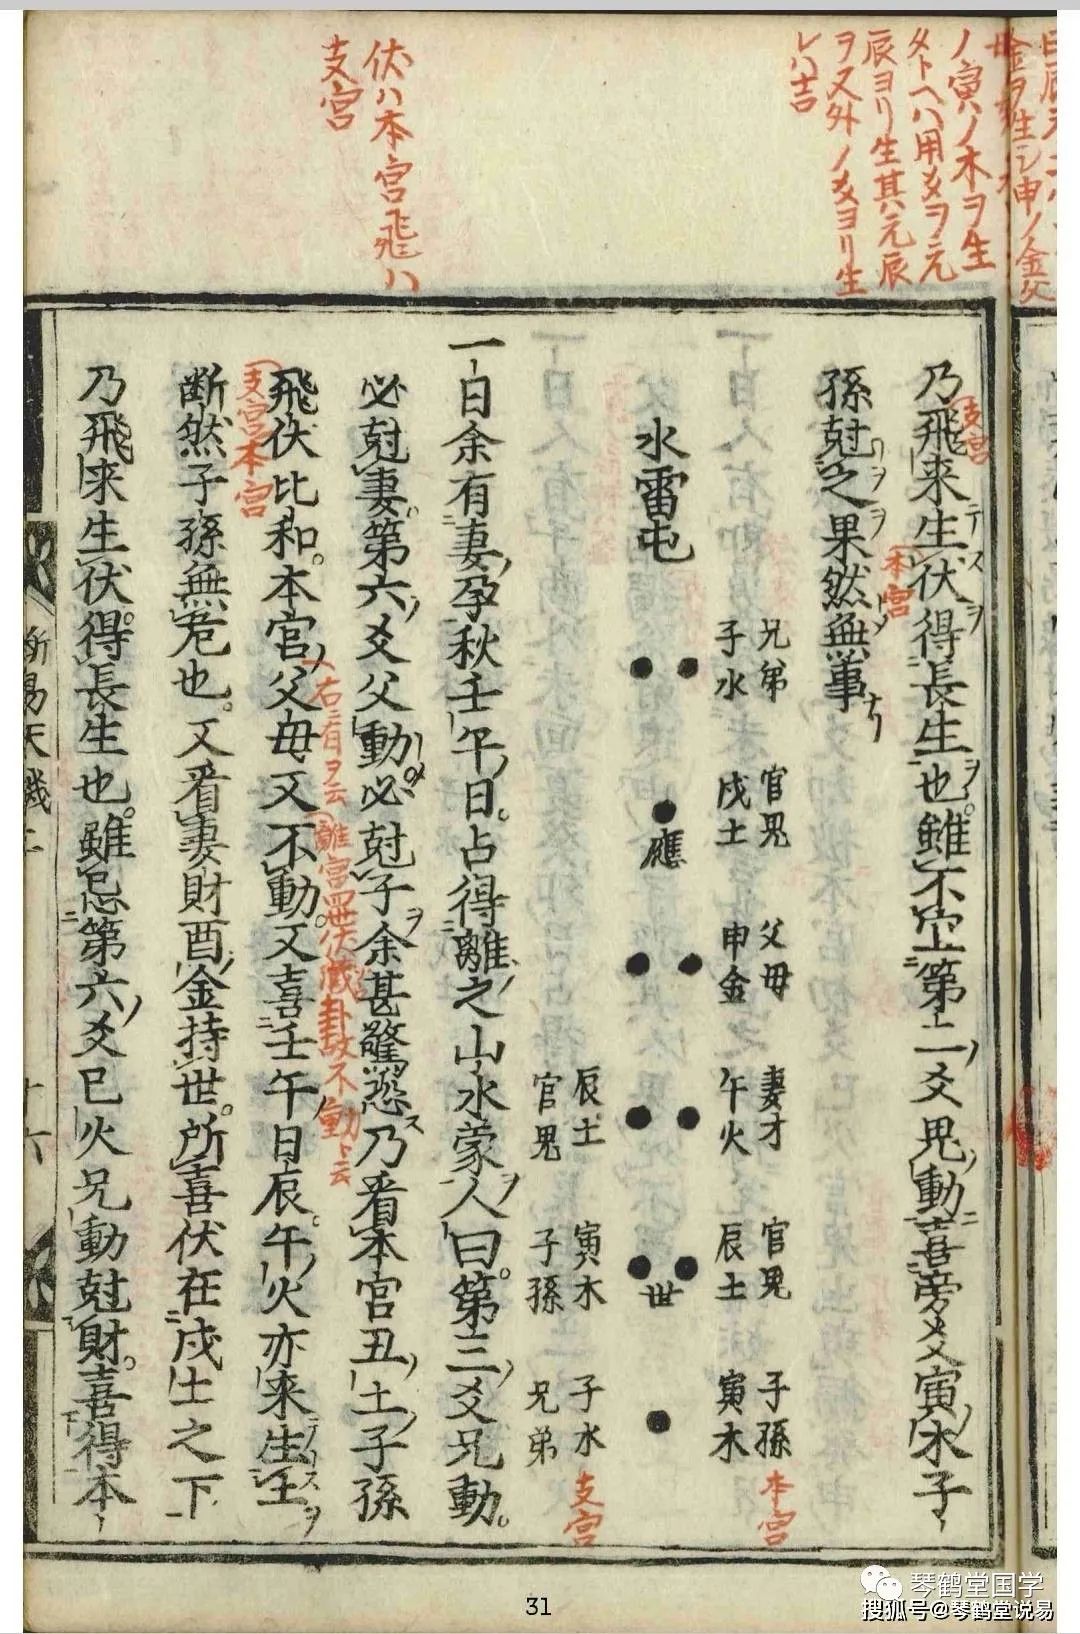 伏ハ本宮飛ハ
支宮
ノ寅ハノ木ヲ生
辰ヨリ生其元辰
ヲ又外ノ爻ヨリ生
レハ吉
乃飛来生伏得長生也雖不空第二爻鬼動喜旁爻寅木子
支宮
本宮
孫尅之果然無事
水雷屯
兄弟 子水
官鬼 戌土
應
父母 申金
妻才 午火
辰土 官鬼
官鬼 辰土
世
寅木 子孫
子孫 寅木
本宮
子水 兄弟
支宮
一日余有妻孕秋壬午日。占得離之山水蒙人曰。第三爻兄動。
必尅妻。第六爻父動。必尅子余甚驚恐乃看本宮丑土子孫
飛伏比和。本宮父母又不動。又喜壬午日辰。午火亦来生土
支宮本宮
断然子孫無危也。又看妻財酉金持世。所喜伏在戌土之下
乃飛来生伏。得長生也。雖忌第六爻巳火兄動尅財。喜得本
断易天機二
十六
31
琴鹤堂国学
搜狐号@琴鹤堂说易